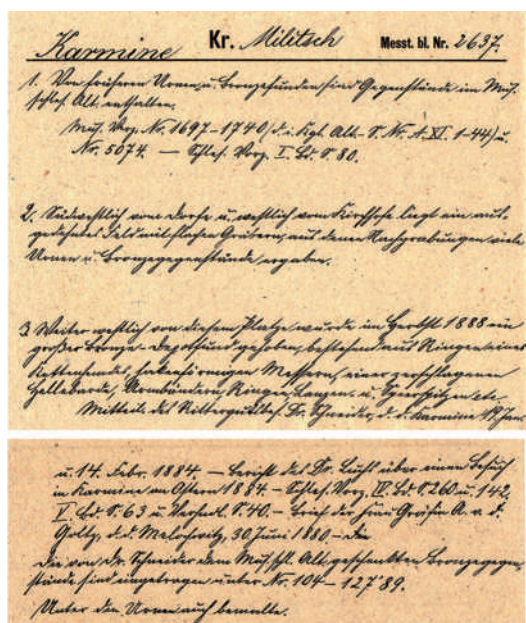 Karmine Kr. Militsch Messt. bl. Nr. 2637.
1. Von früheren Urnen u. Bronzefunden sind Gegenstände im Mus.
schles. Alt. enthalten.
Mus. Verz. Nr. 1697-1740 (d. i. Kgl. Alt. S. Nr. A. XI. 1-44) u.
Nr. 5074. — Schles. Vorz. I. Bd. S. 80.
2. Südwestlich vom Dorfe u. westlich vom Kirchhofe liegt ein aus-
gedehntes Feld mit flachen Gräbern, aus denen Nachgrabungen viele
Urnen u. Bronzegegenstände ergaben.
3. Weiter westlich von diesem Platze wurde im Herbst 1888 ein
großer Bronze-Depotfund gehoben, bestehend aus Ringen, eines
Kettengehänges, Messern, einer zerschlagenen
Hellebarde, Armbändern, Ringen, Lanzen- u. Speerspitzen etc.
Mitteil. des Rittergutsbes. Dr. Schneider, d. d. Karmine 19. Jan.
u. 14. Febr. 1884. — Bericht des Dr. Luchs über einen Besuch
in Karmine an Ostern 1884. — Schles. Vorz. IV. Bd. S. 260 u. 142,
V. Bd. S. 63 u. Verhandl. S. 40. — Brief der Gräfin A. v. d.
Goltz, d. d. Melochwitz, 30. Juni 1880. —
Die von Dr. Schneider dem Mus. schl. Alt. geschenkten Bronzegegen-
stände sind eingetragen unter Nr. 104 — 127'89.
Unter den Urnen auch bemalte.